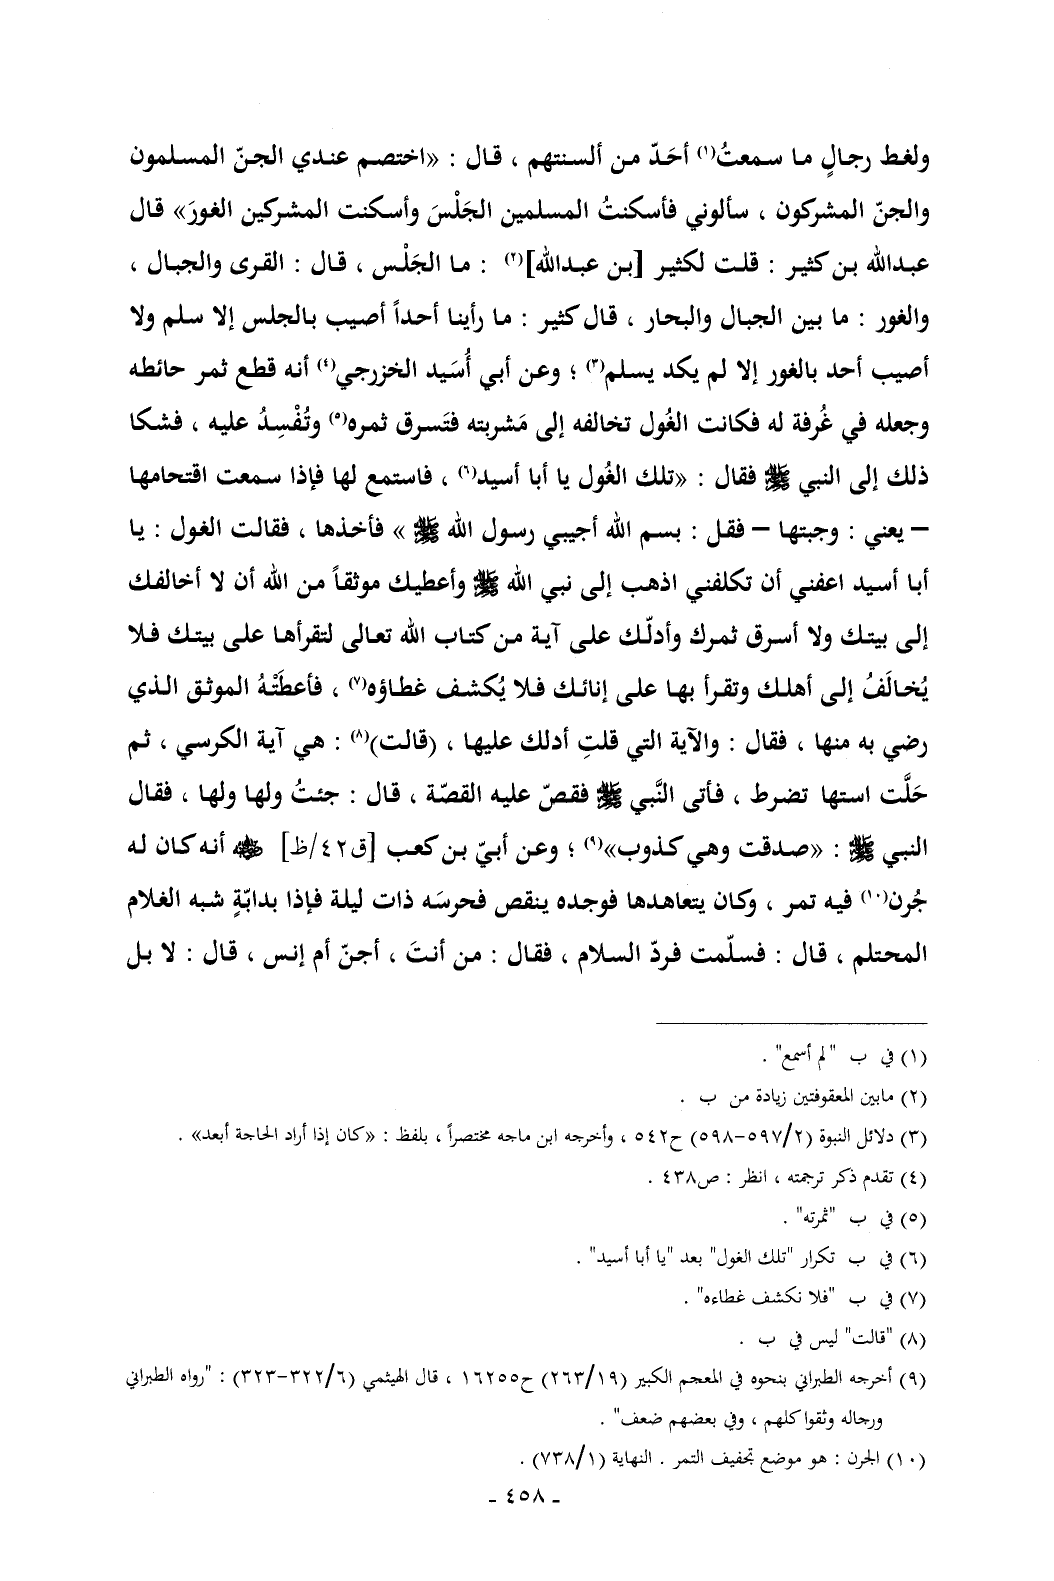 ولغط رجالٍ ما سمعتُ(١) أحَدّ من ألسنتهم ، قال : «اختصم عندي الجنّ المسلمون
والجنّ المشركون ، سألوني فأسكنتُ المسلمين الجَلْسَ وأسكنت المشركين الغورَ» قال
عبدالله بن كثير : قلت لكثير [بن عبدالله](٢) : ما الجَلْس ، قال : القرى والجبال ،
والغور : ما بين الجبال والبحار ، قال كثير : ما رأينا أحداً أصيب بالجلس إلا سلم ولا
أصيب أحد بالغور إلا لم يكد يسلم(٣) ؛ وعن أبي أُسَيد الخزرجي(٤) أنه قطع ثمر حائطه
وجعله في غُرفة له فكانت الغُول تخالفه إلى مَشربته فتَسرق ثمره(٥) وتُفْسِدُ عليه ، فشكا
ذلك إلى النبي ﷺ فقال : «تلك الغُول يا أبا أسيد(٦) ، فاستمع لها فإذا سمعت اقتحامها
– يعني : وجبتها – فقل : بسم الله أجيبي رسول الله ﷺ » فأخذها ، فقالت الغول : يا
أبا أسيد اعفني أن تكلفني اذهب إلى نبي الله ﷺ وأعطيك موثقاً من الله أن لا أخالفك
إلى بيتك ولا أسرق ثمرك وأدلّك على آية من كتاب الله تعالى لتقرأها على بيتك فلا
يُخالَفُ إلى أهلك وتقرأ بها على إنائك فلا يُكشف غطاؤه(٧) ، فأعطَتْهُ الموثق الذي
رضي به منها ، فقال : والآية التي قلتِ أدلك عليها ، (قالت)(٨) : هي آية الكرسي ، ثم
حَلَّت استها تضرط ، فأتى النَّبي ﷺ فقصّ عليه القصّة ، قال : جئتُ ولها ولها ، فقال
النبي ﷺ : «صدقت وهي كذوب»(٩) ؛ وعن أبيّ بن كعب [ق٤٢/ظ] ﷺ أنه كان له
جُرن(١٠) فيه تمر ، وكان يتعاهدها فوجده ينقص فحرسَه ذات ليلة فإذا بدابّةٍ شبه الغلام
المحتلم ، قال : فسلّمت فردّ السلام ، فقال : من أنتَ ، أجنّ أم إنس ، قال : لا بل
(١) في ب "لم أسمع" .
(٢) مابين المعقوفتين زيادة من ب .
(٣) دلائل النبوة (٥٩٧/٢-٥٩٨) ح٥٤٢ ، وأخرجه ابن ماجه مختصراً ، بلفظ : «كان إذا أراد الحاجة أبعد» .
(٤) تقدم ذكر ترجمته ، انظر : ص٤٣٨ .
(٥) في ب "ثمرته" .
(٦) في ب تكرار "تلك الغول" بعد "يا أبا أسيد" .
(٧) في ب "فلا نكشف غطاءه" .
(٨) "قالت" ليس في ب .
(٩) أخرجه الطبراني بنحوه في المعجم الكبير (٢٦٣/١٩) ح١٦٢٥٥ ، قال الهيثمي (٣٢٢/٦-٣٢٣) : "رواه الطبراني
ورجاله وثقوا كلهم ، وفي بعضهم ضعف" .
(١٠) الجرن : هو موضع تجفيف التمر . النهاية (٧٣٨/١) .
- ٤٥٨ -